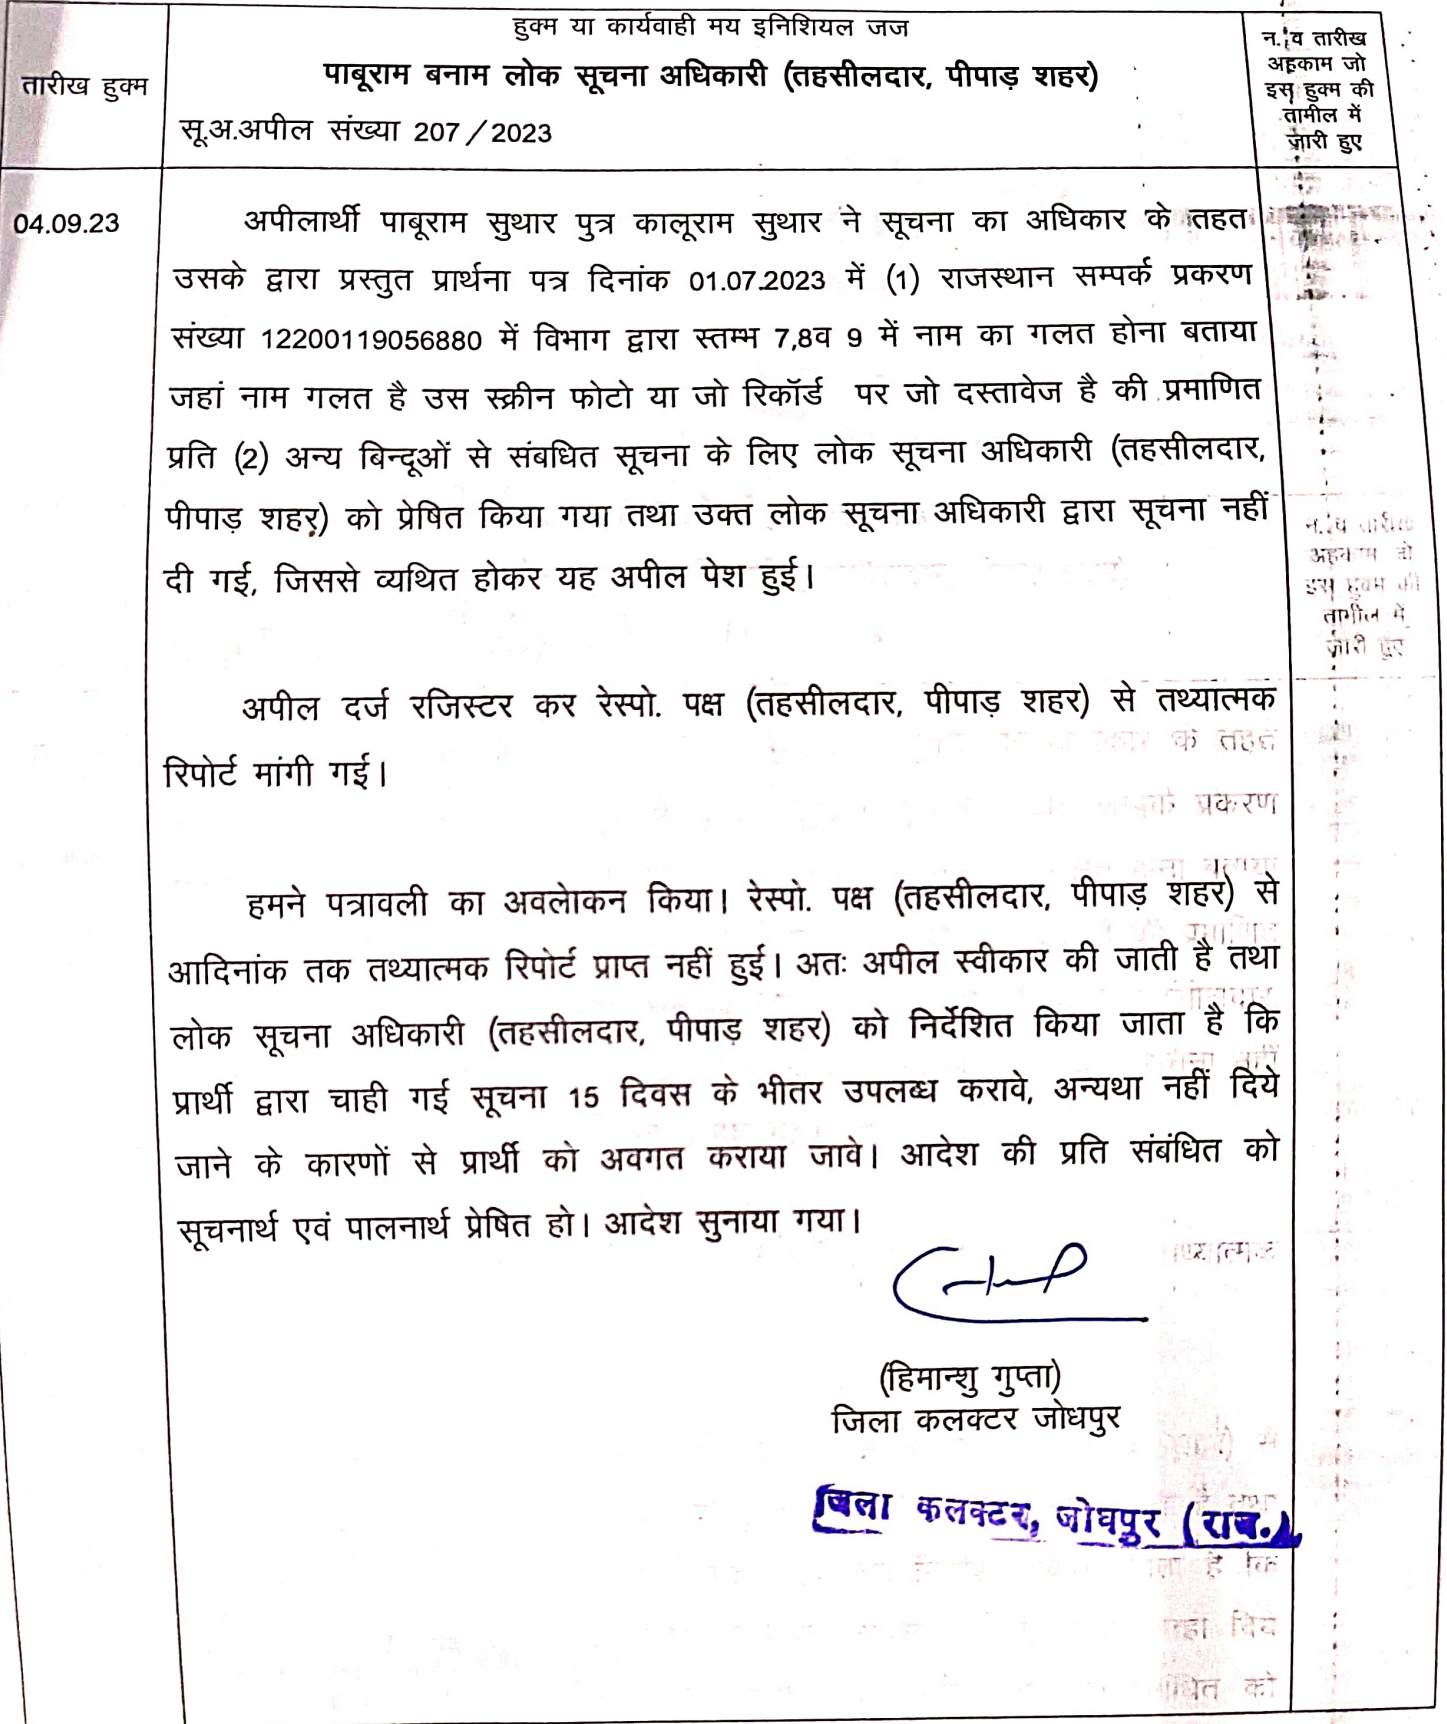 हुक्म या कार्यवाही मय इनिशियल जज
तारीख हुक्म
पाबूराम बनाम लोक सूचना अधिकारी (तहसीलदार, पीपाड़ शहर)
सू.अ.अपील संख्या 207/2023
न. व तारीख
अहकाम जो
इस हुक्म की
तामील में
जारी हुए
04.09.23
अपीलार्थी पाबूराम सुथार पुत्र कालूराम सुथार ने सूचना का अधिकार के तहत
उसके द्वारा प्रस्तुत प्रार्थना पत्र दिनांक 01.07.2023 में (1) राजस्थान सम्पर्क प्रकरण
संख्या 12200119056880 में विभाग द्वारा स्तम्भ 7,8व 9 में नाम का गलत होना बताया
जहां नाम गलत है उस स्क्रीन फोटो या जो रिकॉर्ड पर जो दस्तावेज है की प्रमाणित
प्रति (2) अन्य बिन्दूओं से संबधित सूचना के लिए लोक सूचना अधिकारी (तहसीलदार,
पीपाड़ शहर) को प्रेषित किया गया तथा उक्त लोक सूचना अधिकारी द्वारा सूचना नहीं
दी गई, जिससे व्यथित होकर यह अपील पेश हुई।
न. व तारीख
अहकाम जो
इस हुक्म की
तामील में
जारी हुए
अपील दर्ज रजिस्टर कर रेस्पो. पक्ष (तहसीलदार, पीपाड़ शहर) से तथ्यात्मक
के तहत
रिपोर्ट मांगी गई।
प्रकरण
हमने पत्रावली का अवलोकन किया। रेस्पो. पक्ष (तहसीलदार, पीपाड़ शहर) से
आदिनांक तक तथ्यात्मक रिपोर्ट प्राप्त नहीं हुई। अतः अपील स्वीकार की जाती है तथा
लोक सूचना अधिकारी (तहसीलदार, पीपाड़ शहर) को निर्देशित किया जाता है कि
प्रार्थी द्वारा चाही गई सूचना 15 दिवस के भीतर उपलब्ध करावे, अन्यथा नहीं दिये
जाने के कारणों से प्रार्थी को अवगत कराया जावे। आदेश की प्रति संबंधित को
सूचनार्थ एवं पालनार्थ प्रेषित हो। आदेश सुनाया गया।
(हिमान्शु गुप्ता)
जिला कलक्टर जोधपुर
जिला कलक्टर, जोधपुर (राज.)
है कि
को